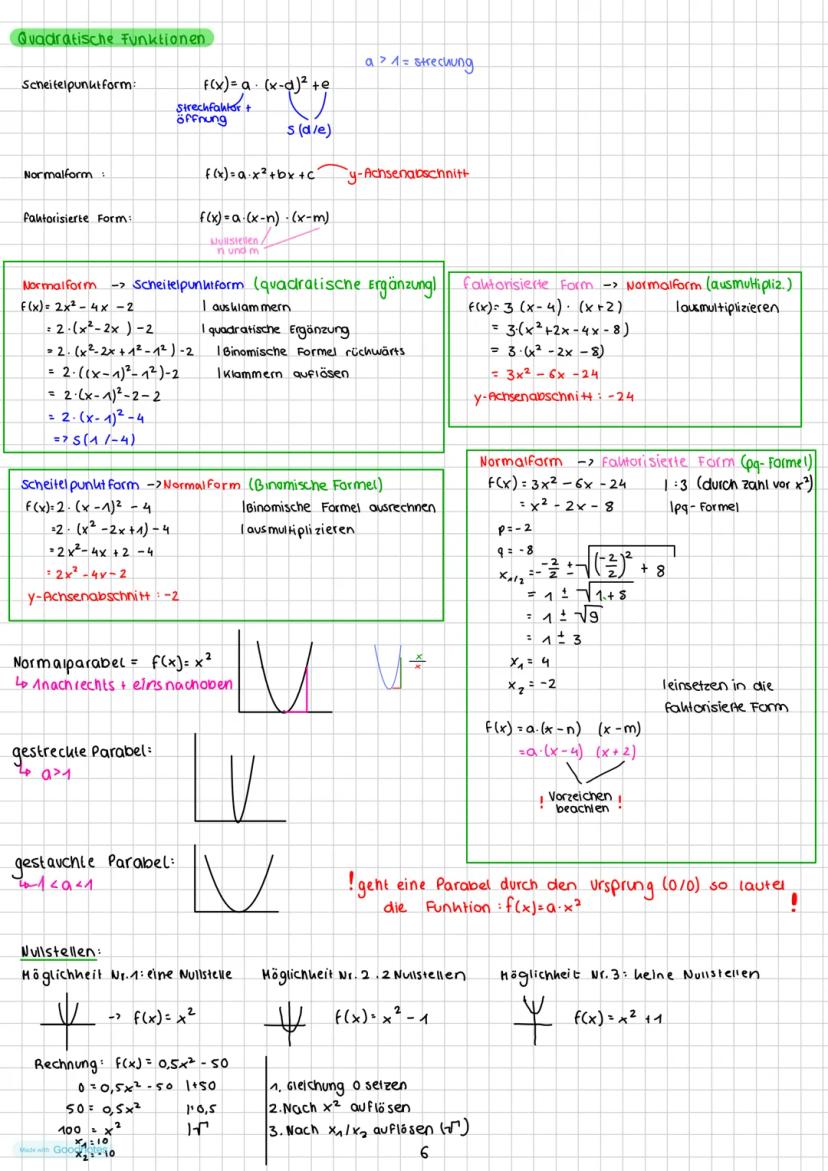 Quadratische Funktionen
a > 1 = streckung
Scheitelpunktform: f(x) = a · (x-d)² + e
Streckfaktor +
öffnung
S (d/e)
Normalform : f(x) = a·x² + bx + c y-Achsenabschnitt
faktorisierte Form: f(x) = a·(x-n) · (x-m)
Nullstellen
n und m
Normalform -> Scheitelpunktform (quadratische Ergänzung)
f(x) = 2x² - 4x - 2 | ausklammern
= 2·(x² - 2x ) - 2 | quadratische Ergänzung
= 2·(x² - 2x + 1² - 1²) - 2 | Binomische Formel rückwärts
= 2·((x-1)² - 1²) - 2 | Klammern auflösen
= 2·(x-1)² - 2 - 2
= 2·(x-1)² - 4
=> S(1/-4)
faktorisierte Form -> Normalform (ausmultipliz.)
f(x) = 3 (x-4) · (x+2) | ausmultiplizieren
= 3·(x² + 2x - 4x - 8)
= 3·(x² - 2x - 8)
= 3x² - 6x - 24
y-Achsenabschnitt : -24
Scheitelpunktform -> Normalform (Binomische Formel)
f(x) = 2·(x-1)² - 4 | Binomische Formel ausrechnen
= 2·(x² - 2x + 1) - 4 | ausmultiplizieren
= 2x² - 4x + 2 - 4
= 2x² - 4x - 2
y-Achsenabschnitt : -2
Normalform -> Faktorisierte Form (pq-Formel)
f(x) = 3x² - 6x - 24 | :3 (durch zahl vor x²)
= x² - 2x - 8 | pq-Formel
p = -2
q = -8
x₁/₂ = - -2/2 ± √(-2/2)² + 8
= 1 ± √1 + 8
= 1 ± √9
= 1 ± 3
x₁ = 4
x₂ = -2 | einsetzen in die
faktorisierte Form
f(x) = a·(x-n) (x-m)
= a·(x-4) (x+2)
! Vorzeichen !
beachten
Normalparabel = f(x) = x²
↳ 1 nach rechts + eins nach oben
x/x
gestreckte Parabel:
↳ a>1
gestauchte Parabel:
↳ -1 < a < 1
! geht eine Parabel durch den Ursprung (0/0) so lautet
die Funktion : f(x) = a·x² !
Nullstellen:
Möglichkeit Nr.1: eine Nullstelle Möglichkeit Nr. 2 : 2 Nullstellen Möglichkeit Nr. 3 : keine Nullstellen
-> f(x) = x² f(x) = x² - 1 f(x) = x² + 1
Rechnung: f(x) = 0,5x² - 50
0 = 0,5x² - 50 | +50 1. Gleichung 0 setzen
50 = 0,5x² | : 0,5 2. Nach x² auflösen
100 = x² | √ 3. Nach x₁/x₂ auflösen (√)
x₁ = 10
x₂ = -10
Made with Goodnotes
6